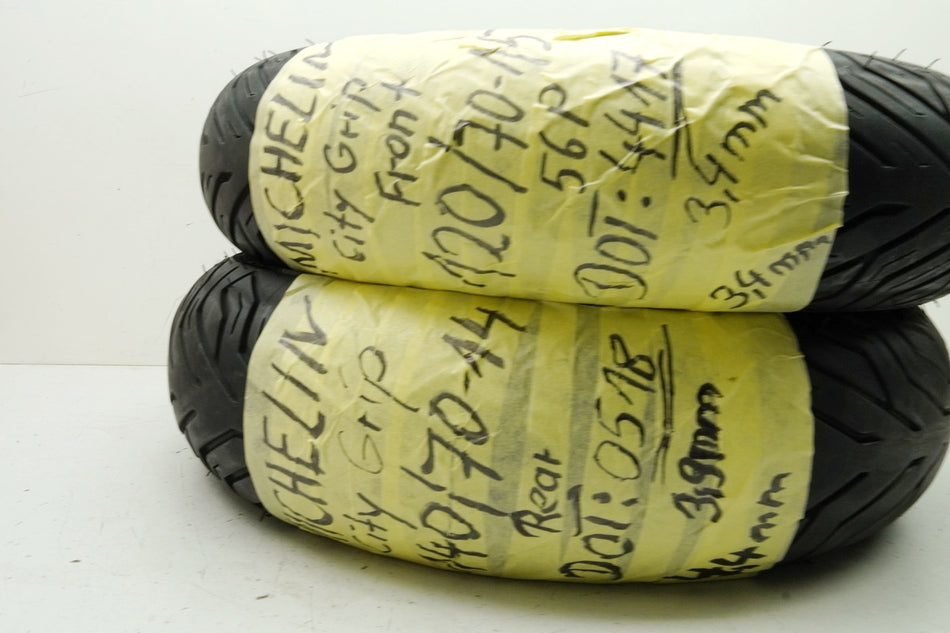 MICHELIN
City Grip
Front
120/70-15
56P
DOT: 4417
3,4mm
3,4mm
MICHELIN
City Grip
140/70-14
Rear
DOT: 0518
3,9mm
4,4mm